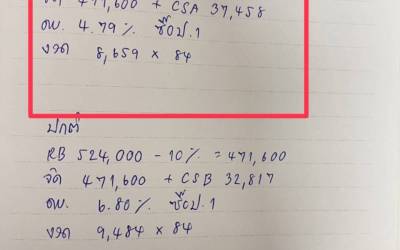 จัด 471,600 + CSA 37,458
ดบ. 4.79% ซื้อป.1
งวด 8,659 x 84
ปกติ
RB 524,000 - 10% = 471,600
จัด 471,600 + CSB 32,817
ดบ. 6.80% ซื้อป.1
งวด 9,484 x 84